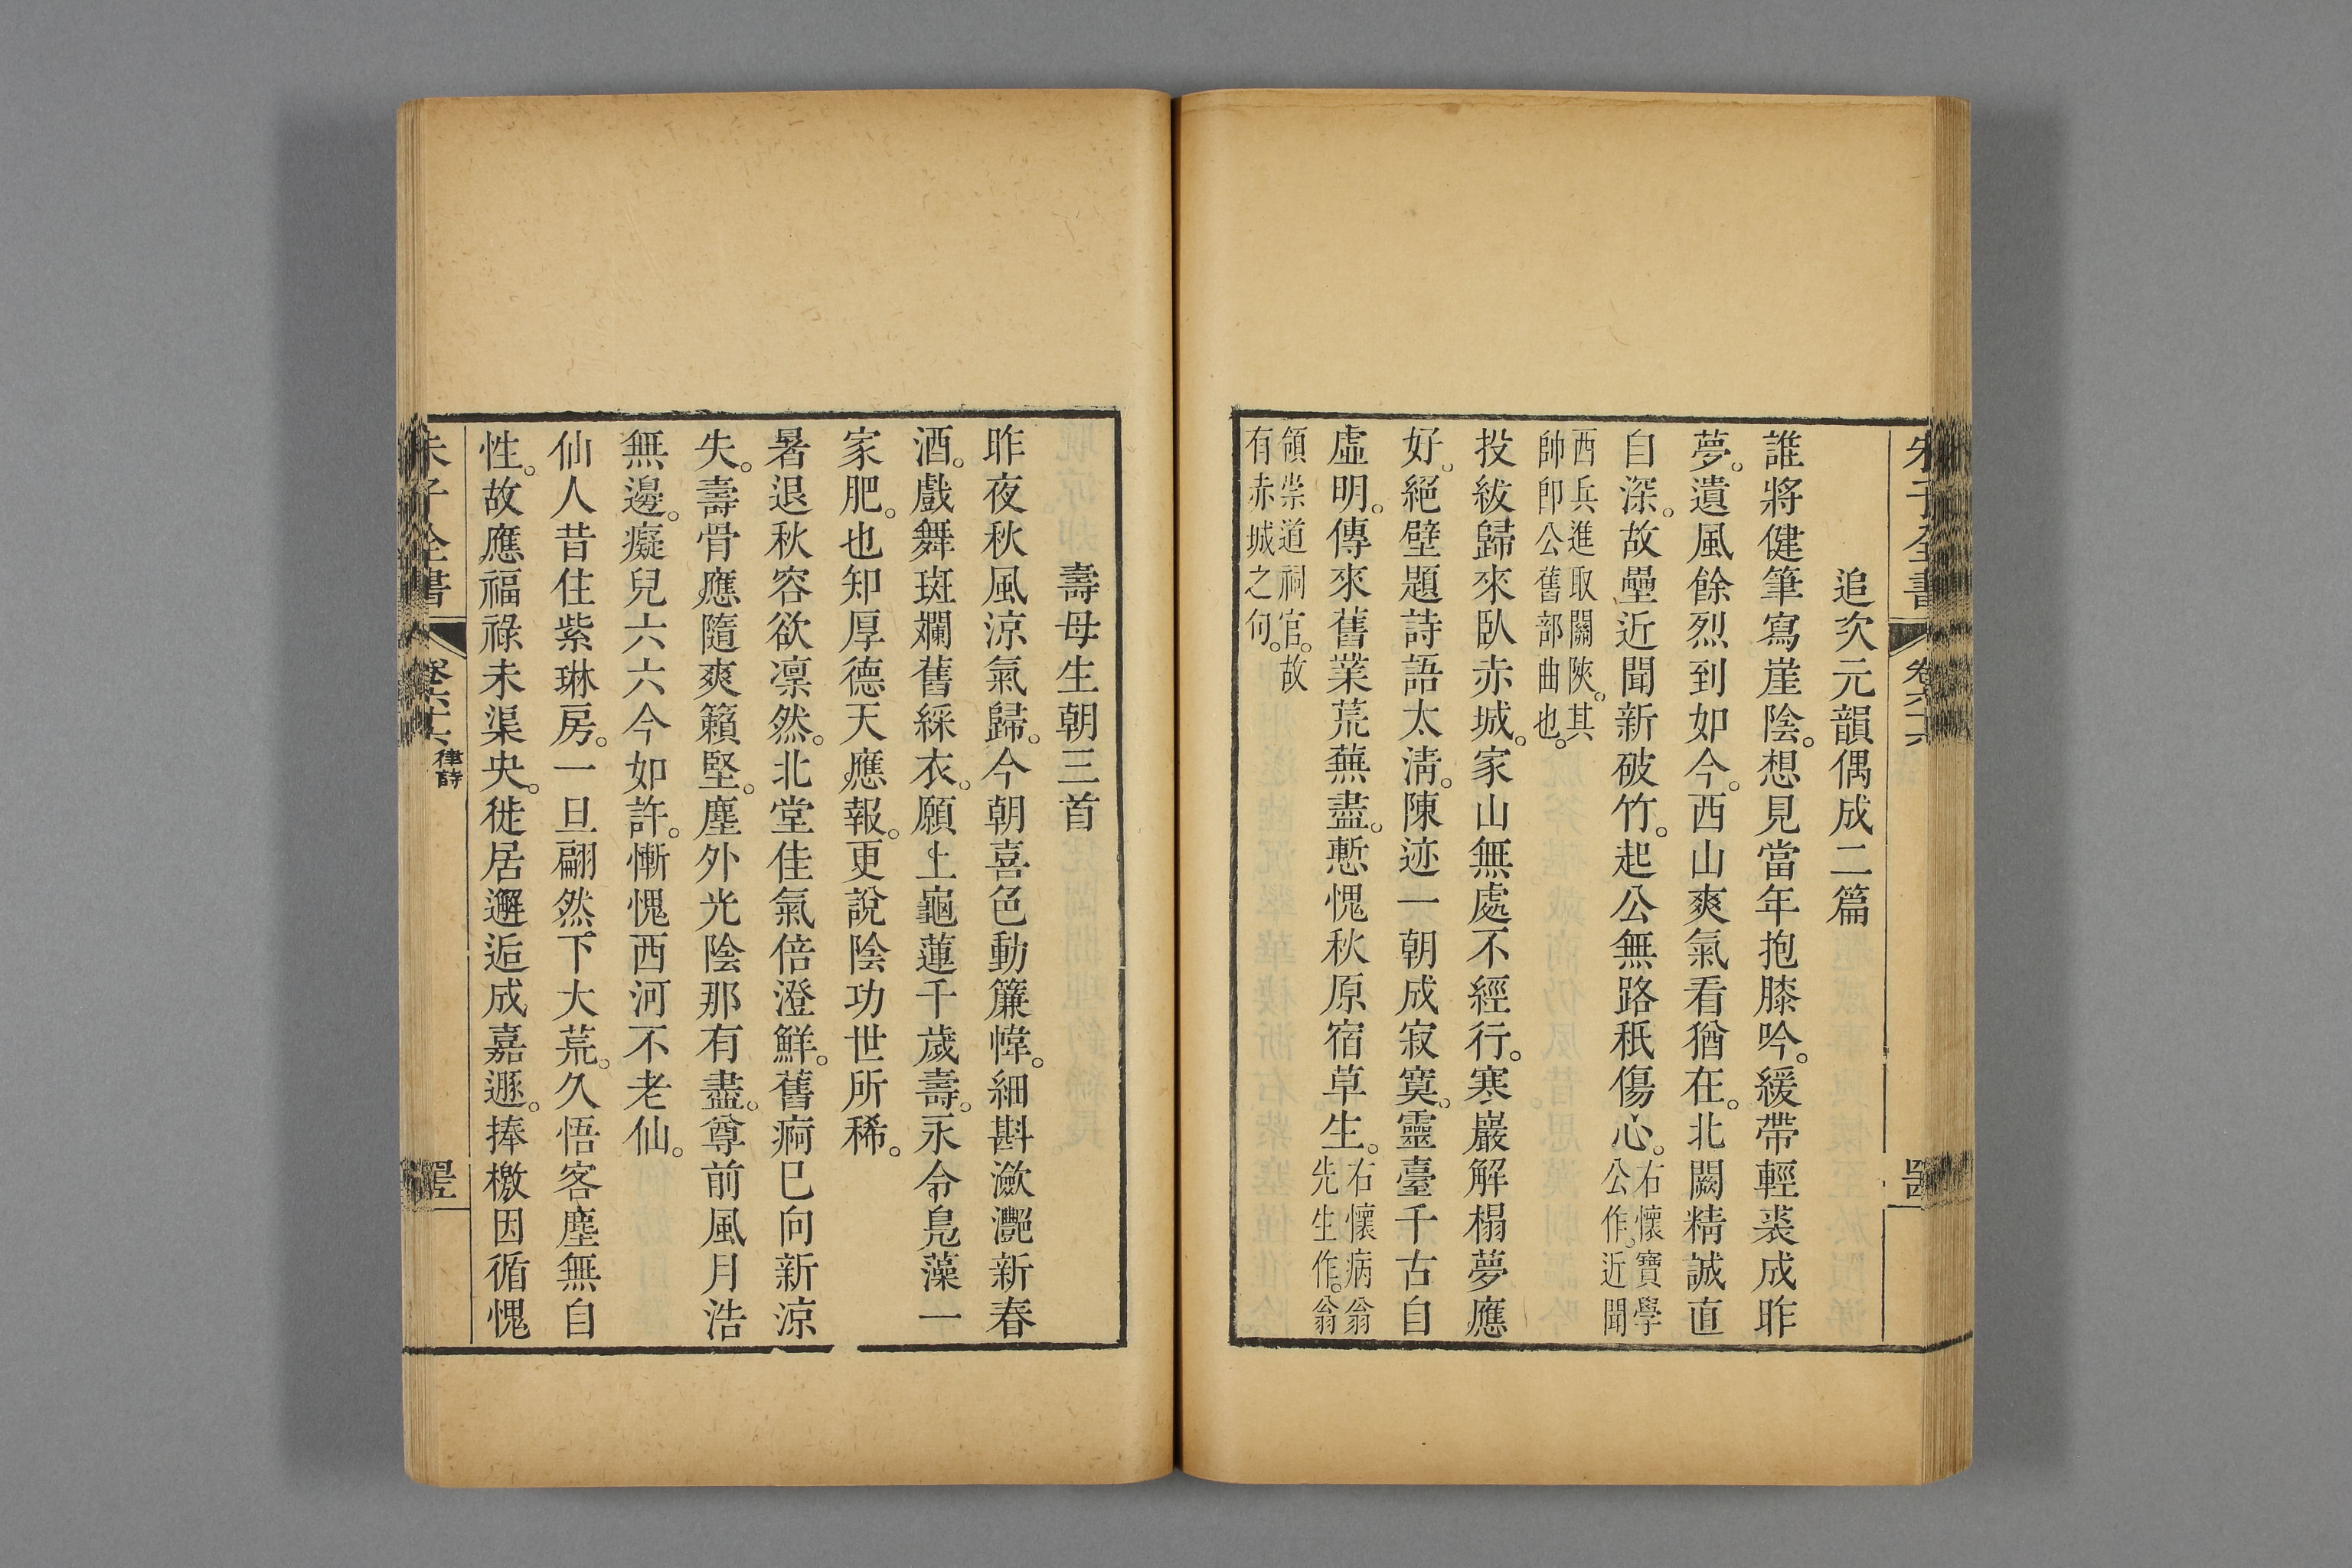 朱子全書
卷六十六
追次元韻偶成二篇
誰將健筆寫崖陰。想見當年抱膝吟。緩帶輕裘成昨
夢。遺風餘烈到如今。西山爽氣看猶在。北闕精誠直
自深。故壘近聞新破竹。起公無路秖傷心。右懷寶學公作。近聞
西兵進取關陝。其帥卽公舊部曲也。
投紱歸來臥赤城。家山無處不經行。寒巖解榻夢應
好。絕壁題詩語太淸。陳迹一朝成寂寞。靈臺千古自
虛明。傳來舊業荒蕪盡。慙愧秋原宿草生。右懷病翁先生作。翁
領崇道祠官。故有赤城之句。
壽母生朝三首
昨夜秋風涼氣歸。今朝喜色動簾幃。細斟瀲灩新春
酒。戲舞斑斕舊綵衣。願上龜蓮千歲壽。永令鳧藻一
家肥。也知厚德天應報。更說陰功世所稀。
暑退秋容欲凜然。北堂佳氣倍澄鮮。舊痾已向新涼
失。壽骨應隨爽籟堅。塵外光陰那有盡。尊前風月浩
無邊。癡兒六六今如許。慚愧西河不老仙。
仙人昔住紫琳房。一旦翩然下大荒。久悟客塵無自
性。故應福祿未渠央。徙居邂逅成嘉遯。捧檄因循愧
朱子全書
卷六十六
律詩